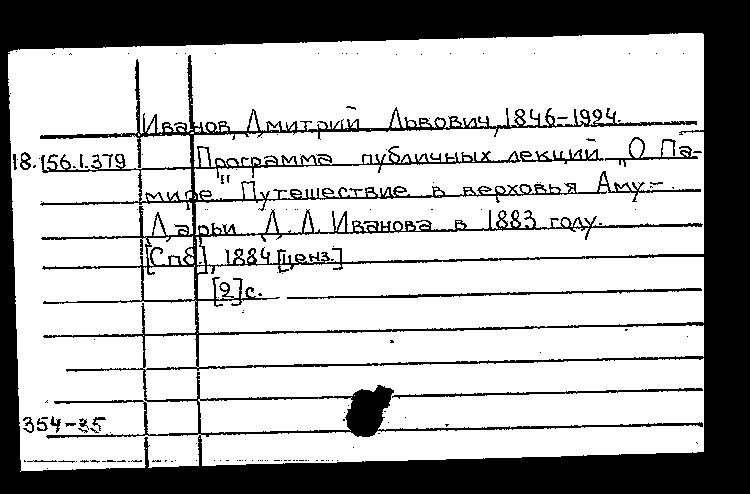 Иванов, Дмитрий Львович, 1846–1924.
18.156.1.379 Программа публичных лекций "О Па-
мире" Путешествие в верховья Аму-
Дарьи Д. Л. Иванова в 1883 году.
[Спб.], 1884 [ценз.]
[2] с.
354-35